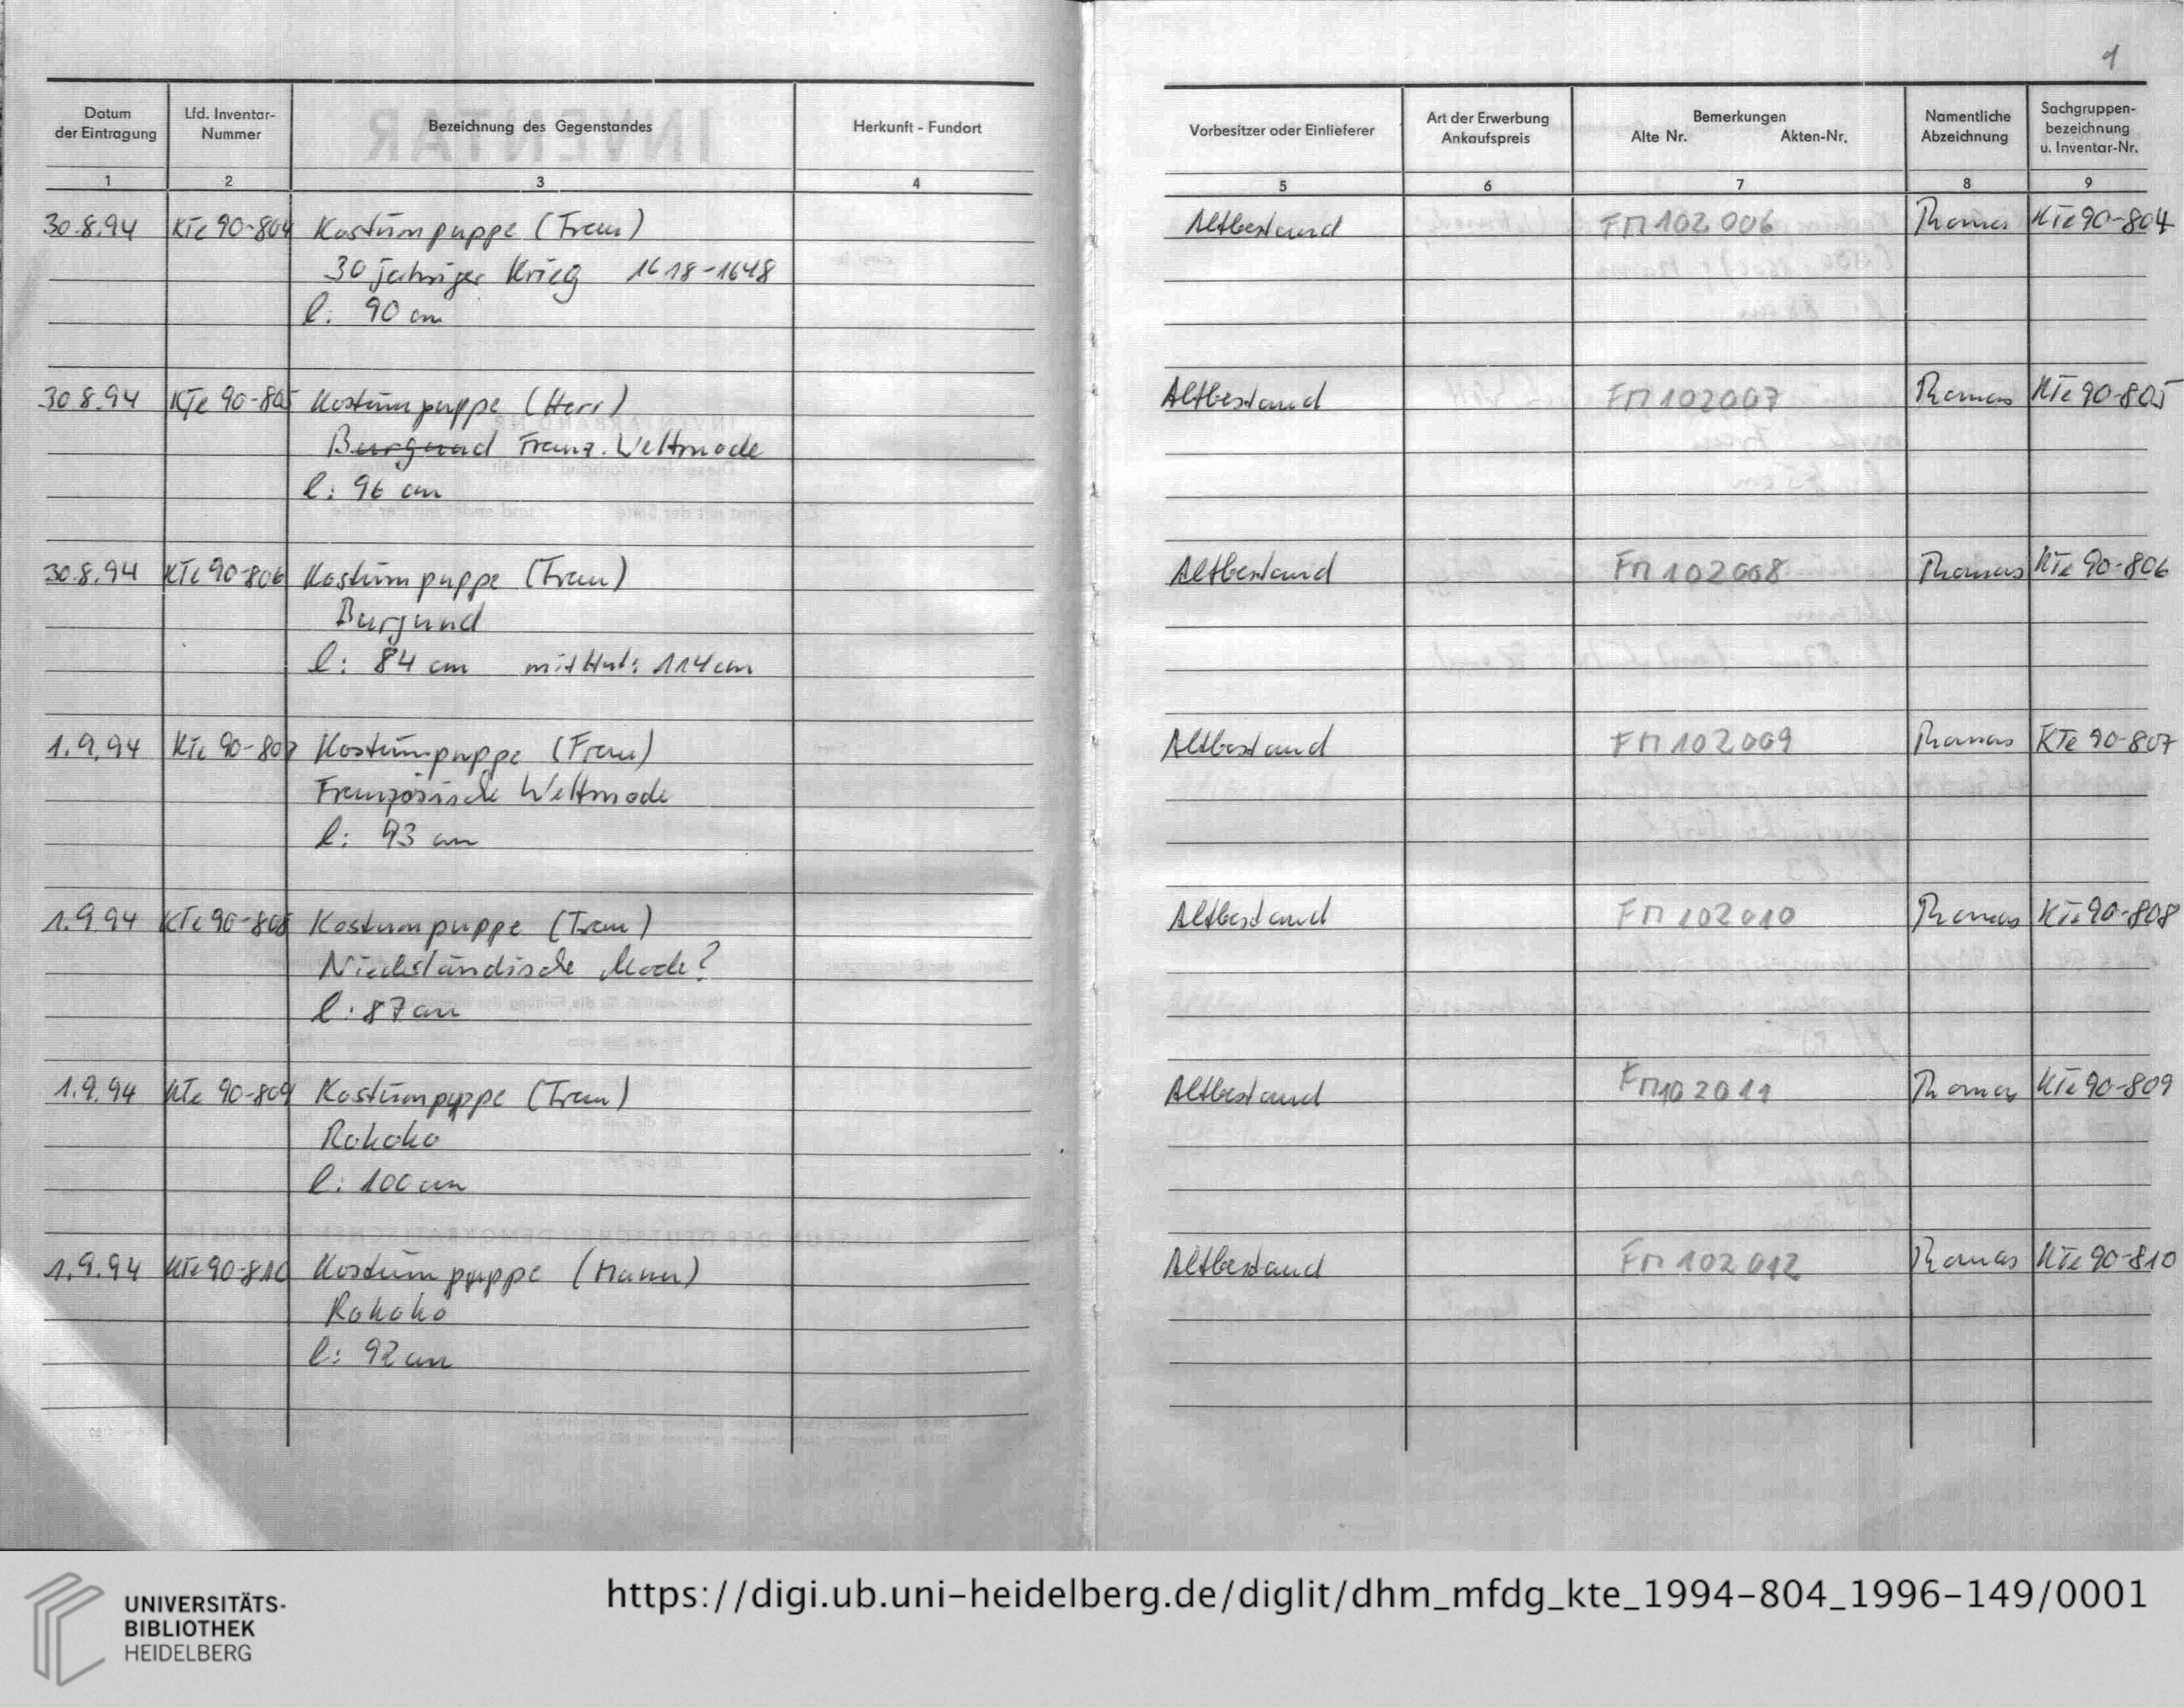 1
Datum der Eintragung | Lfd. Inventar-Nummer | Bezeichnung des Gegenstandes | Herkunft - Fundort | Vorbesitzer oder Einlieferer | Art der Erwerbung Ankaufspreis | Bemerkungen Alte Nr. Akten-Nr. | Namentliche Abzeichnung | Sachgruppen-bezeichnung u. Inventar-Nr.
1 | 2 | 3 | 4 | 5 | 6 | 7 | 8 | 9
30.8.94 | KTe 90-804 | Kostümpuppe (Frau) | Altbestand | FM 102 006 | Thomas | KTe 90-804
30 jähriger Krieg 1618-1648
l: 90 cm
30.8.94 | KTe 90-805 | Kostümpuppe (Herr) | Altbestand | FM 102007 | Thomas | KTe 90-805
Burgund Franz. Weltmode
l: 96 cm
30.8.94 | KTe 90-806 | Kostümpuppe (Frau) | Altbestand | FM 102008 | Thomas | KTe 90-806
Burgund
l: 84 cm mit Hut: 114 cm
1.9.94 | KTe 90-807 | Kostümpuppe (Frau) | Altbestand | FM 102009 | Thomas | KTe 90-807
Französische Weltmode
l: 93 cm
1.9.94 | KTe 90-808 | Kostümpuppe (Frau) | Altbestand | FM 102010 | Thomas | KTe 90-808
Niederländische Mode?
l: 87 cm
1.9.94 | KTe 90-809 | Kostümpuppe (Frau) | Altbestand | FM 102011 | Thomas | KTe 90-809
Rokoko
l: 100 cm
1.9.94 | KTe 90-810 | Kostümpuppe (Mann) | Altbestand | FM 102012 | Thomas | KTe 90-810
Rokoko
l: 92 cm
UNIVERSITÄTS-
BIBLIOTHEK
HEIDELBERG
https://digi.ub.uni-heidelberg.de/diglit/dhm_mfdg_kte_1994-804_1996-149/0001